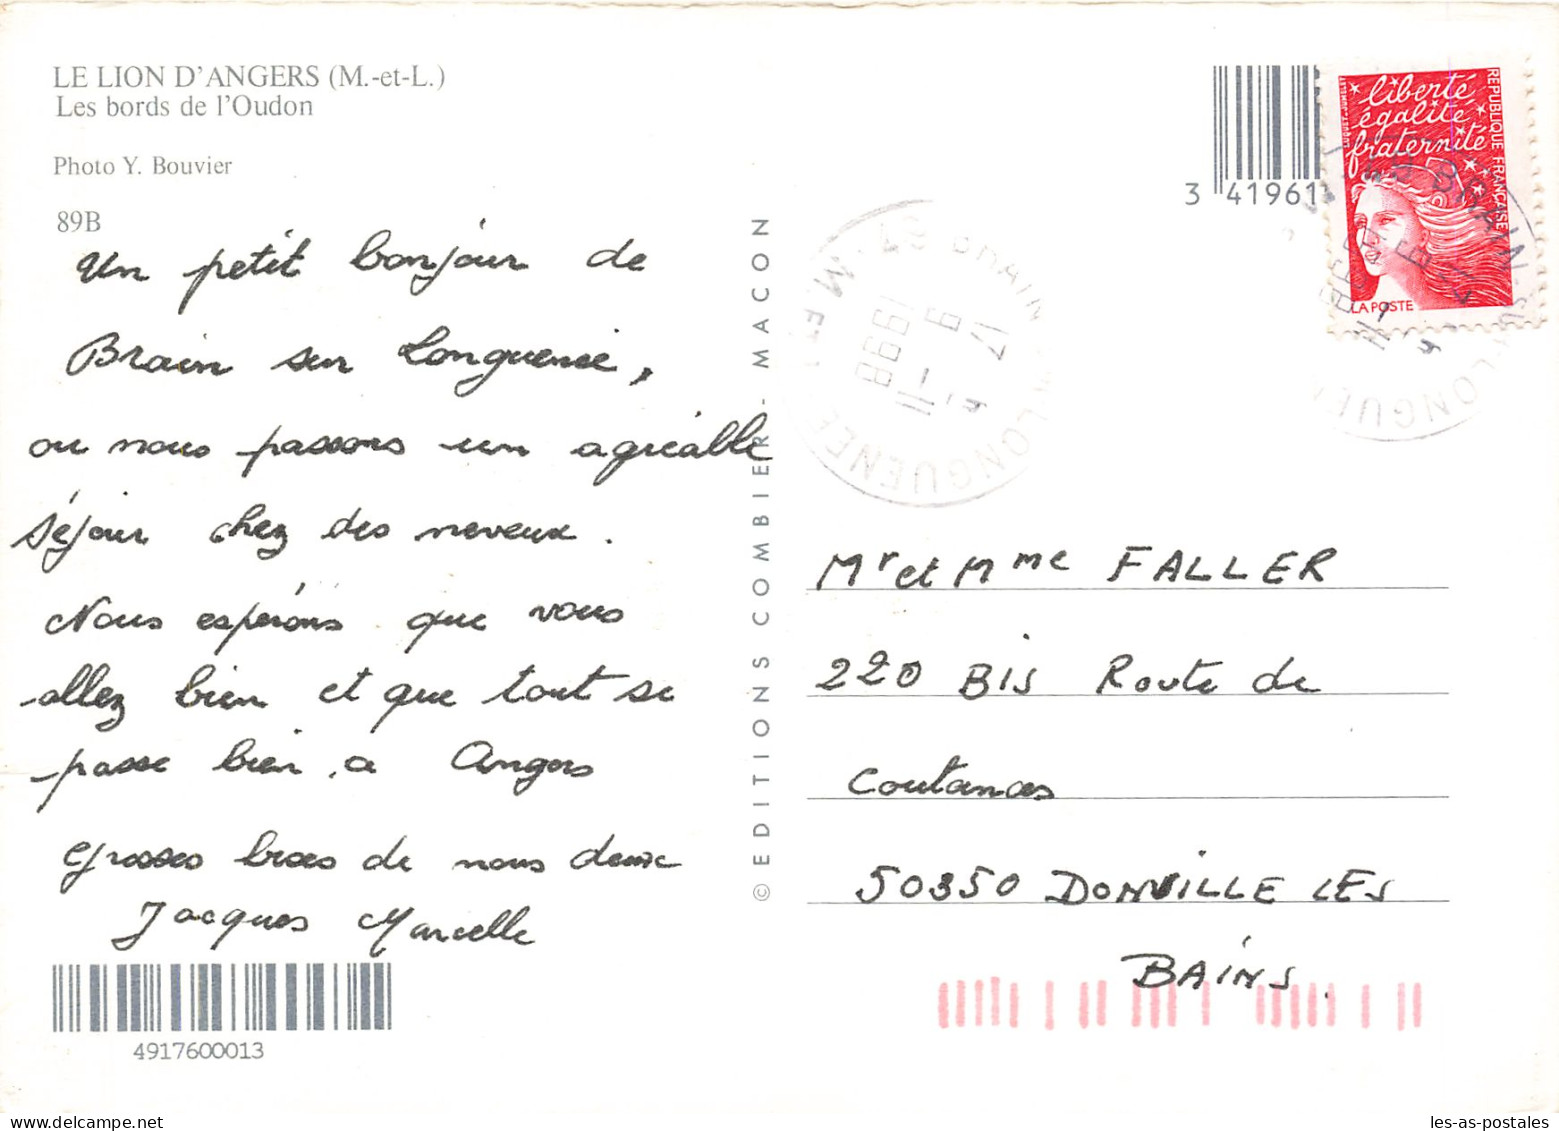 LE LION D'ANGERS (M.-et-L.)
Les bords de l'Oudon
Photo Y. Bouvier
89B
Un petit bonjour de
Brain sur Longuenée,
ou nous passons un agréable
séjour chez des neveux.
Nous espérons que vous
allez bien et que tout se
passe bien, a Angers
Grosses bises de nous deux
Jacques Marcelle
4917600013
© EDITIONS COMBIER - MACON
3 41961
liberté
égalité
fraternité
REPUBLIQUE FRANÇAISE
LA POSTE
BRAIN LONGUENEE
17
11-6
1998
Mr et Mme FALLER
220 BIS Route de
Coutances
50350 DONVILLE LES
BAINS.
les-as-postales